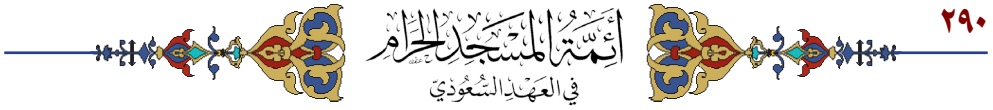 ٢٩٠
أَئِمَّةُ المَسْجِدِ الحَرَامِ
في العَهْدِ السُّعُودِيّ